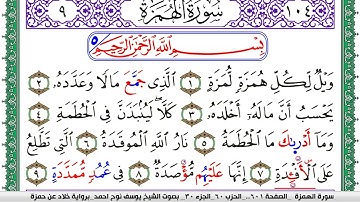 ١٠٤ سُورَةُ الْهُمَزَةِ ٩
٥ بِسْمِ اللَّهِ الرَّحْمَٰنِ الرَّحِيمِ
وَيْلٌ لِكُلِّ هُمَزَةٍ لُمَزَةٍ ١ الَّذِي جَمَّعَ مَالًا وَعَدَّدَهُ ٢
يَحْسِبُ أَنَّ مَالَهُ أَخْلَدَهُ ٣ كَلَّا لَيُنْبَذَنَّ فِي الْحُطَمَةِ ٤
وَمَا أَدْرِىكَ مَا الْحُطَمَةُ ٥ نَارُ اللَّهِ الْمُوقَدَةُ ٦ الَّتِي تَطَّلِعُ
عَلَى الْأَفْئِدَةِ ٧ إِنَّهَا عَلَيْهُمْ مُؤْصَدَةٌ ٨ فِي عُمُدٍ مُمَدَّدَةٍ ٩
سورة الهمزة _ الصفحة ٦٠١ _ الحزب ٦٠ _ الجزء ٣٠ _ بصوت الشيخ يوسف نوح احمد _ برواية خلاد عن حمزة